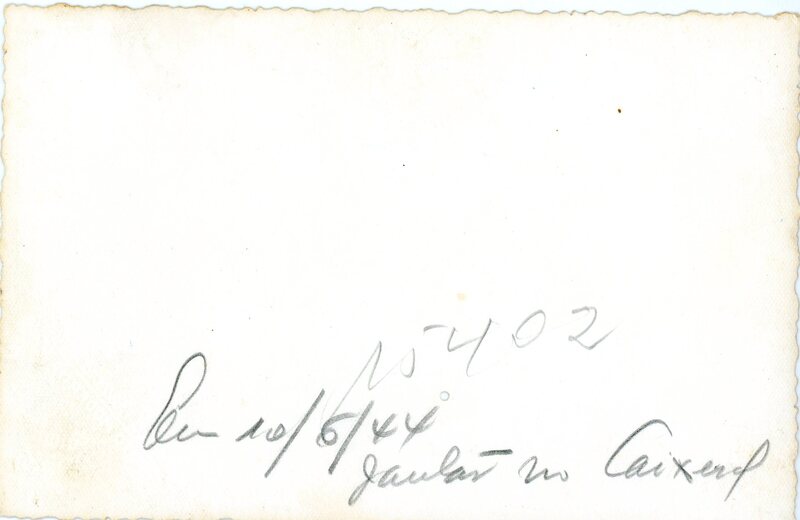 15402
Em 10/5/44
Jantar no Caixeral